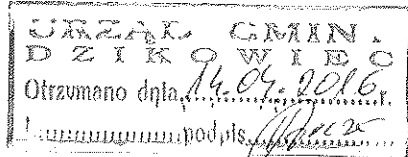 URZĄD GMIN.
DZIKOWIEC
Otrzymano dnia 14.04.2016 r.
podpis